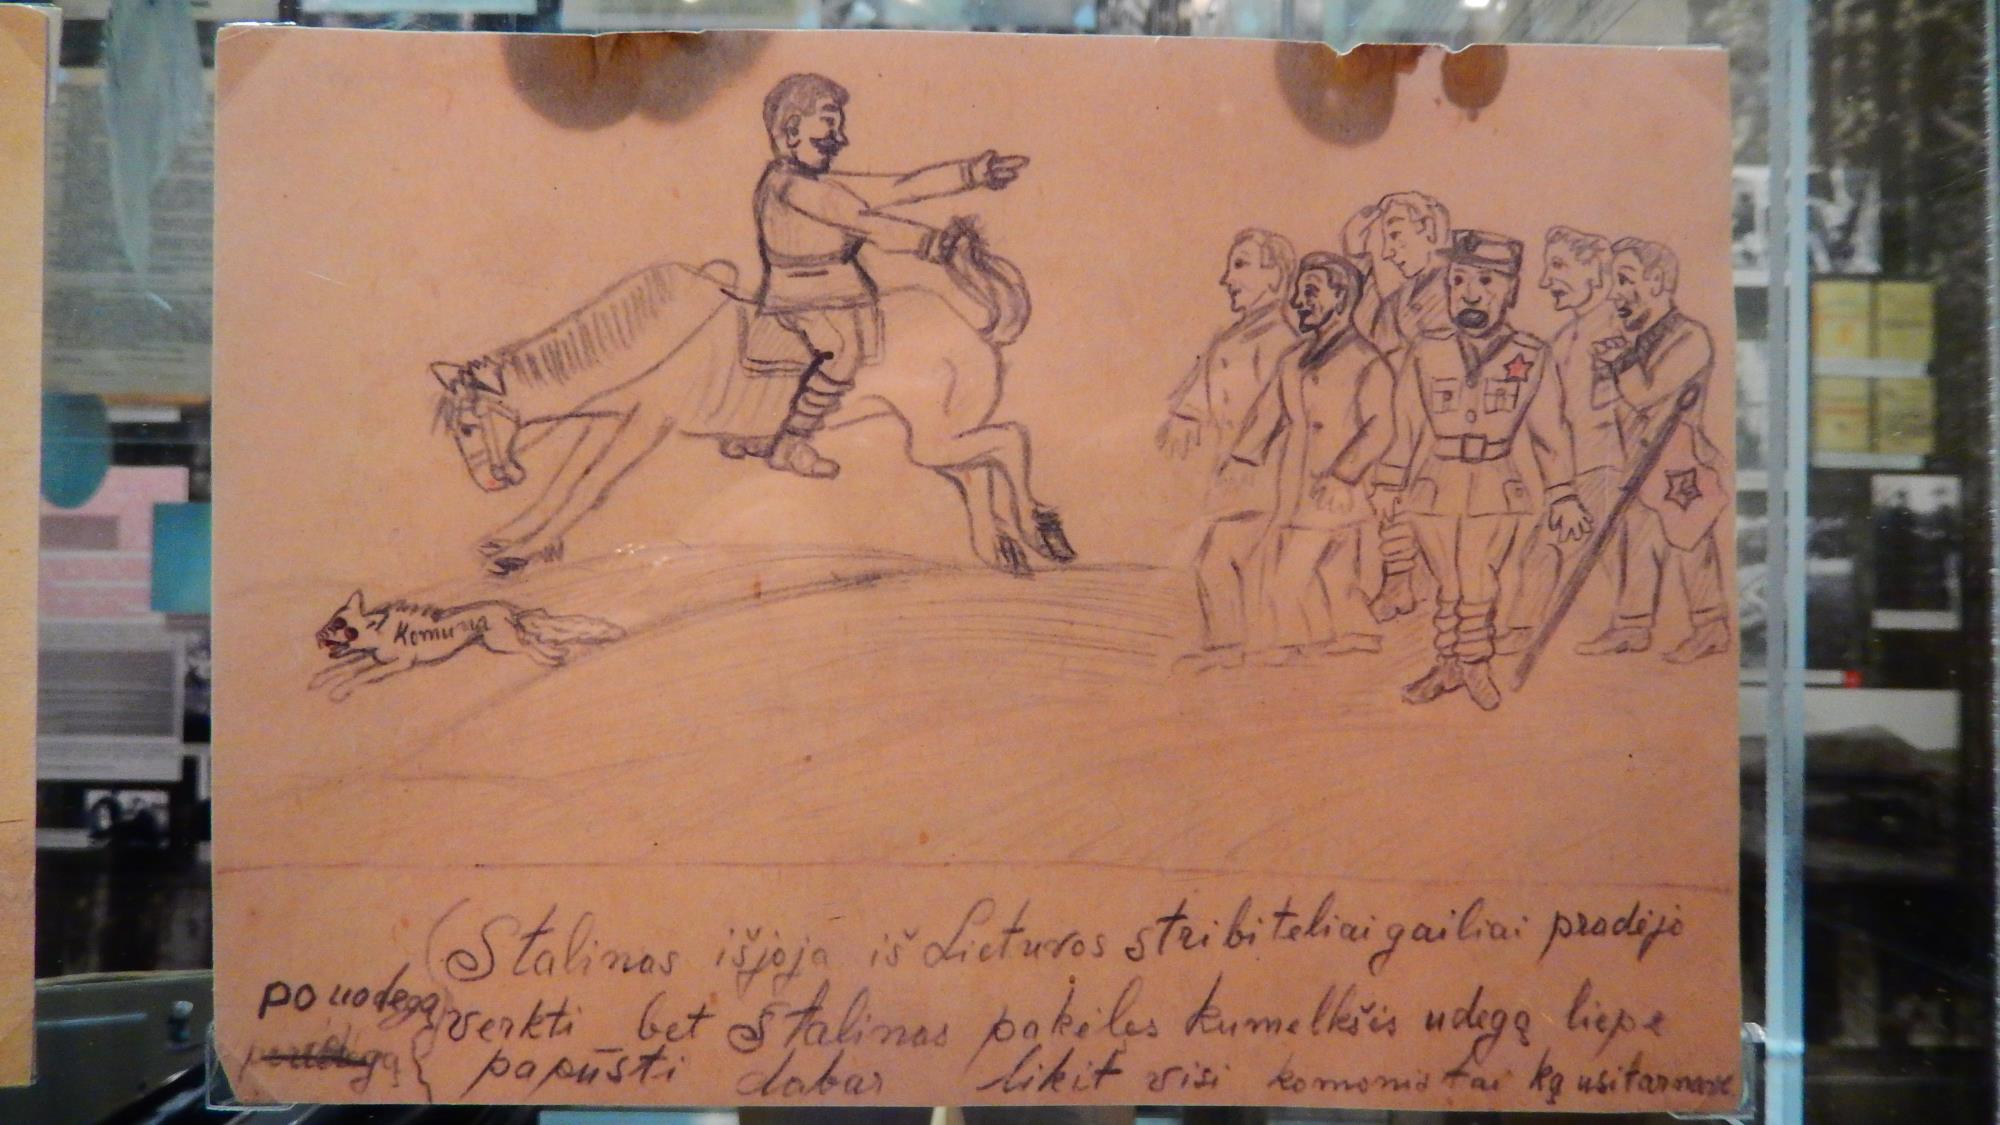 Komuna
(Stalinas išjoja iš Lietuvos stribiteliai gailiai pradėjo
po uodegą verkti bet Stalinas pakėlęs kumelkšis udegą liepe
papūsti dabar likit visi komonistai ką usitarnave